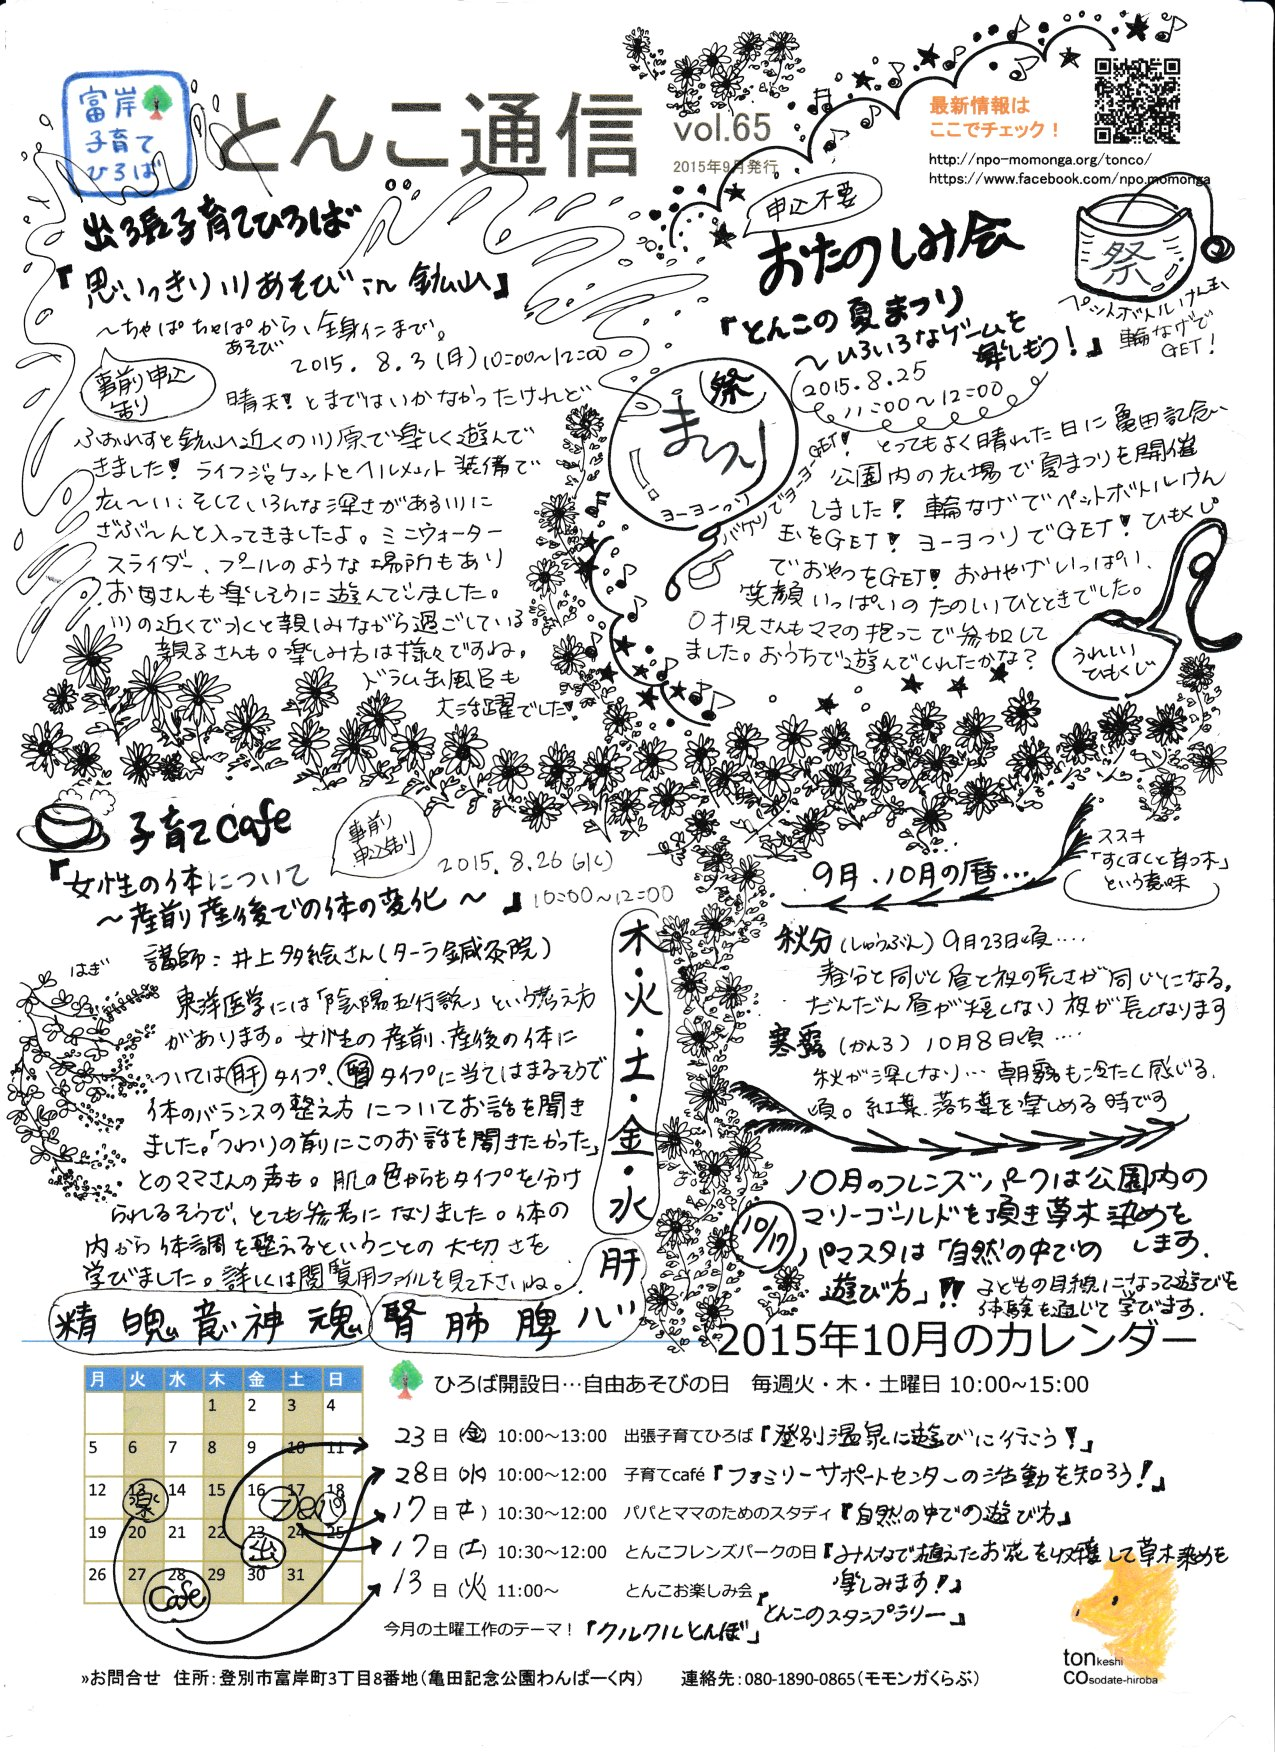 富岸
子育て
ひろば
とんこ通信
vol.65
2015年9月発行
最新情報は
ここでチェック！
http://npo-momonga.org/tonco/
https://www.facebook.com/npo.momonga
出張子育てひろば
『思いっきり川あそび in 鉱山』
～ちゃぱちゃぱから、全身に まで。
あそび
2015.8.3(月)10:00～12:00
事前申込
制
晴天！とまではいかなかったけれど
ふぉれすと鉱山近くの川原で楽しく遊んで
きました！ライフジャケットとヘルメット装備で
広～い、そしていろんな深さがある川に
ざぶ～んと入ってきましたよ。ミニウォーター
スライダー、プールのような場所もあり
お母さんも楽しそうに遊んでいました。
川の近くで水と親しみながら過ごしている
親子さんも。楽しみ方は様々ですね。
ドラム缶風呂も
大活躍でした！
申込不要
おたのしみ会
『とんこの夏まつり
～いろいろなゲームを
楽しもう！』
2015.8.25
11:00～12:00
祭
ペットボトルけん玉
輪なげで
GET！
祭
まつり
ヨーヨーつり
バケツでヨーヨーGET！
とってもよく晴れた日に亀田記念
公園内の広場で夏まつりを開催
しました！輪なげでペットボトルけん
玉をGET！ヨーヨつりでGET！ひもくじ
でおやつをGET！おみやげいっぱい、
笑顔いっぱいのたのしいひとときでした。
0才児さんもママの抱っこで参加して
ました。おうちで遊んでくれたかな？
うれしい
ひもくじ
子育てcafe
事前
申込制
2015.8.26(水)
10:00～12:00
『女性の体について
～産前産後での体の変化～』
講師：井上多絵さん(ターラ鍼灸院)
はぎ
東洋医学には「陰陽五行説」という考え方
があります。女性の産前・産後の体に
ついては肝タイプ、腎タイプに当てはまるそうで
体のバランスの整え方についてお話を聞き
ました。「つわりの前にこのお話を聞きたかった」
とのママさんの声も。肌の色からもタイプを分け
られるそうで、とても参考になりました。体の
内から体調を整えるということの大切さを
学びました。詳しくは閲覧用ファイルを見て下さいね。
木・火・土・金・水
肝
精 魄 意 神 魂
腎 肺 脾 心
9月、10月の暦…
ススキ
「すくすくと育つ木」
という意味
秋分(しゅうぶん)9月23日頃….
春分と同じく昼と夜の長さが同じになる。
だんだん昼が短くなり夜が長くなります
寒露(かんろ)10月8日頃…
秋が深くなり…朝露も冷たく感じる
頃。紅葉、落ち葉を楽しめる時です
10月のフレンズパークは公園内の
マリーゴールドを頂き草木染めを
します。
10/17
パマスタは「自然の中での
遊び方」!!
子どもの目線になって遊びを
体験を通じて学びます。
2015年10月のカレンダー
月 火 水 木 金 土 日
1 2 3 4
5 6 7 8 9 10 11
12 13 14 15 16 17 18
19 20 21 22 23 24 25
26 27 28 29 30 31
出
Cafe
ひろば開設日…自由あそびの日 毎週火・木・土曜日 10:00~15:00
23日(金) 10:00～13:00 出張子育てひろば『登別温泉に遊びに行こう！』
28日(水) 10:00～12:00 子育てcafé『ファミリーサポートセンターの活動を知ろう！』
17日(土) 10:30～12:00 パパとママのためのスタディ『自然の中での遊び方』
17日(土) 10:30～12:00 とんこフレンズパークの日『みんなで植えたお花を収穫して草木染めを
楽しみます！』
13日(火) 11:00～ とんこお楽しみ会『とんこのスタンプラリー』
今月の土曜工作のテーマ！『クルクルとんぼ』
»お問合せ 住所：登別市富岸町3丁目8番地(亀田記念公園わんぱーく内) 連絡先：080-1890-0865(モモンガくらぶ)
tonkeshi
COsodate-hiroba